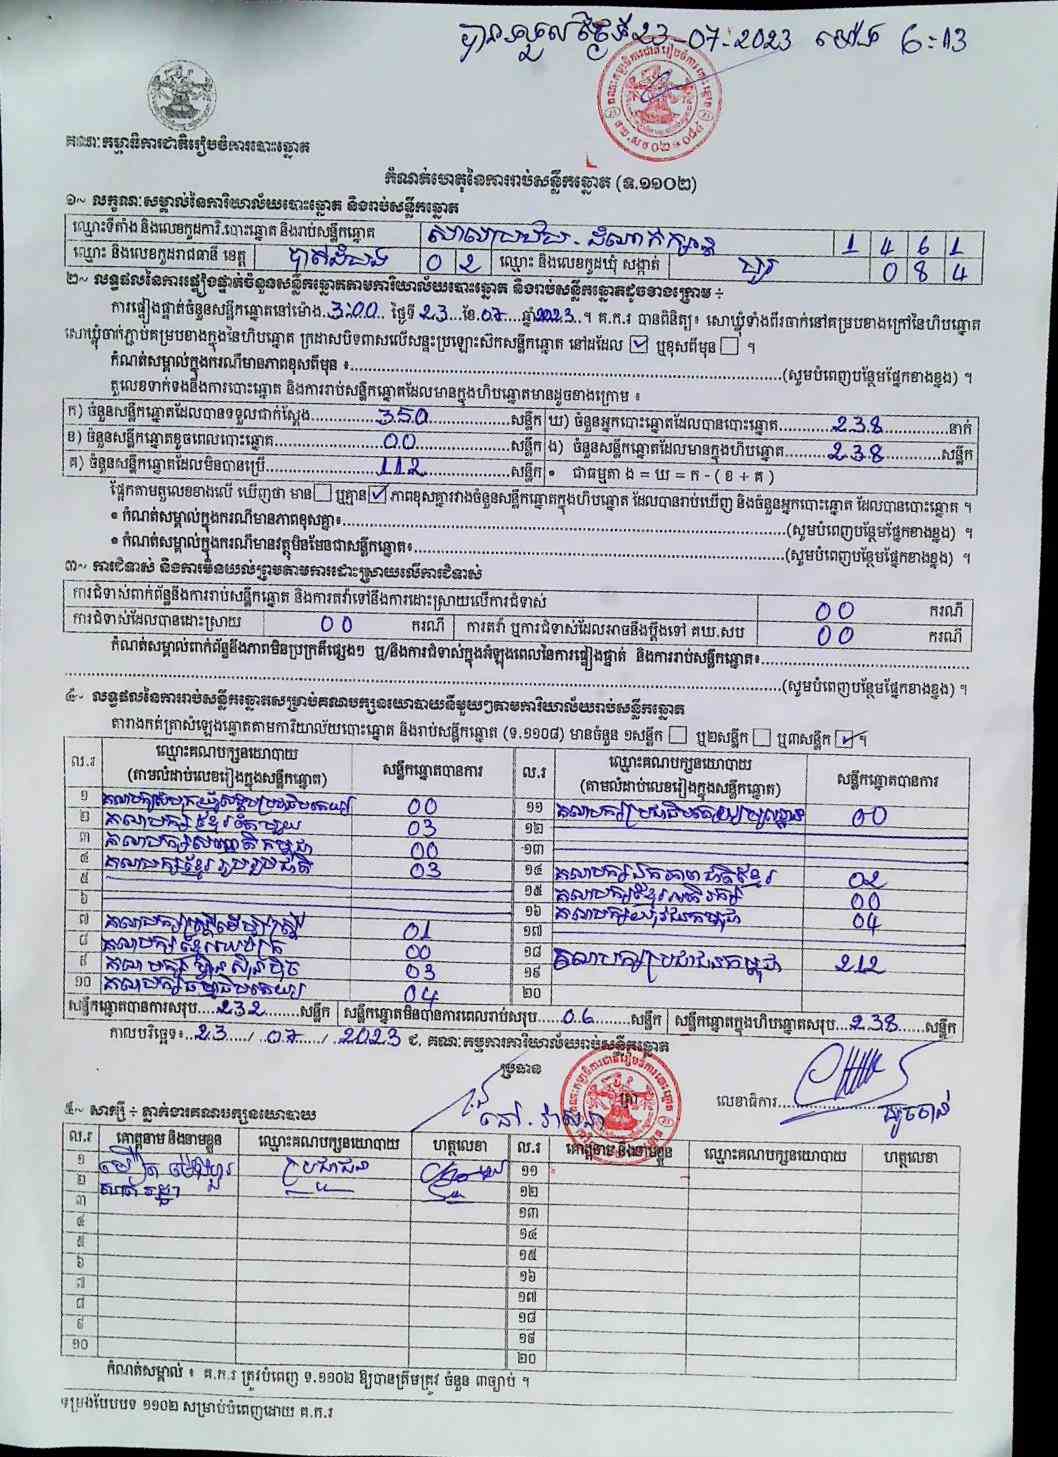 បានទទួលថ្ងៃទី23-07-2023 ម៉ោង 6:13
គណៈកម្មាធិការជាតិរៀបចំការបោះឆ្នោត
កំណត់ហេតុនៃការរាប់សន្លឹកឆ្នោត (ទ.១១០២)
១~ លក្ខណៈសម្គាល់នៃការិយាល័យបោះឆ្នោត និងរាប់សន្លឹកឆ្នោត
ឈ្មោះទីតាំង និងលេខកូដការិ.បោះឆ្នោត និងរាប់សន្លឹកឆ្នោត 1 4 6 1
ឈ្មោះ និងលេខកូដរាជធានី ខេត្ត បាត់ដំបង 0 2 ឈ្មោះ និងលេខកូដឃុំ សង្កាត់ 0 8 4
២~ លទ្ធផលនៃការផ្ទៀងផ្ទាត់ចំនួនសន្លឹកឆ្នោតតាមការិយាល័យបោះឆ្នោត និងរាប់សន្លឹកឆ្នោតដូចខាងក្រោម ÷
ការផ្ទៀងផ្ទាត់ចំនួនសន្លឹកឆ្នោតនៅម៉ោង..3:00.. ថ្ងៃទី 23..ខែ.07....ឆ្នាំ2023..។ គ.ក.រ បានពិនិត្យ៖ សោឃ្លុំទាំងពីរចាក់នៅគម្របខាងក្រៅនៃហិបឆ្នោត
សោឃ្លុំចាក់ភ្ជាប់គម្របខាងក្នុងនៃហិបឆ្នោត ក្រដាសបិទពាសលើសន្ទះប្រឡោះស៊កសន្លឹកឆ្នោត នៅដដែល ☑ ឬខុសពីមុន ☐ ។
កំណត់សម្គាល់ក្នុងករណីមានភាពខុសពីមុន ៖.....(សូមបំពេញបន្ថែមផ្នែកខាងខ្នង) ។
តួលេខទាក់ទងនឹងការបោះឆ្នោត និងការរាប់សន្លឹកឆ្នោតដែលមានក្នុងហិបឆ្នោតមានដូចខាងក្រោម ៖
ក) ចំនួនសន្លឹកឆ្នោតដែលបានទទួលជាក់ស្តែង.....350.....សន្លឹក ឃ) ចំនួនអ្នកបោះឆ្នោតដែលបានបោះឆ្នោត.....238.....នាក់
ខ) ចំនួនសន្លឹកឆ្នោតខូចពេលបោះឆ្នោត.....00.....សន្លឹក ង) ចំនួនសន្លឹកឆ្នោតដែលមានក្នុងហិបឆ្នោត.....238.....សន្លឹក
គ) ចំនួនសន្លឹកឆ្នោតដែលមិនបានប្រើ.....112.....សន្លឹក • ជាធម្មតា ង = ឃ = ក - ( ខ + គ )
ផ្អែកតាមតួលេខខាងលើ ឃើញថា មាន ☐ ឬគ្មាន ☑ ភាពខុសគ្នារវាងចំនួនសន្លឹកឆ្នោតក្នុងហិបឆ្នោត ដែលបានរាប់ឃើញ និងចំនួនអ្នកបោះឆ្នោត ដែលបានបោះឆ្នោត ។
• កំណត់សម្គាល់ក្នុងករណីមានភាពខុសគ្នា៖.....(សូមបំពេញបន្ថែមផ្នែកខាងខ្នង) ។
• កំណត់សម្គាល់ក្នុងករណីមានវត្ថុមិនមែនជាសន្លឹកឆ្នោត៖.....(សូមបំពេញបន្ថែមផ្នែកខាងខ្នង) ។
៣~ ការជំទាស់ និងការមិនយល់ព្រមតាមការដោះស្រាយលើការជំទាស់
ការជំទាស់ពាក់ព័ន្ធនឹងការរាប់សន្លឹកឆ្នោត និងការតវ៉ាទៅនឹងការដោះស្រាយលើការជំទាស់ 00 ករណី
ការជំទាស់ដែលបានដោះស្រាយ 00 ករណី ការតវ៉ា ឬការជំទាស់ដែលអាចនឹងប្តឹងទៅ គឃ.សប 00 ករណី
កំណត់សម្គាល់ពាក់ព័ន្ធនឹងភាពមិនប្រក្រតីផ្សេងៗ ឬ/និងការជំទាស់ក្នុងអំឡុងពេលនៃការផ្ទៀងផ្ទាត់ និងការរាប់សន្លឹកឆ្នោត៖.....
.....(សូមបំពេញបន្ថែមផ្នែកខាងខ្នង) ។
៤~ លទ្ធផលនៃការរាប់សន្លឹកឆ្នោតសម្រាប់គណបក្សនយោបាយនីមួយៗតាមការិយាល័យរាប់សន្លឹកឆ្នោត
តារាងកត់ត្រាសំឡេងឆ្នោតតាមការិយាល័យបោះឆ្នោត និងរាប់សន្លឹកឆ្នោត (ទ.១១០៨) មានចំនួន ១សន្លឹក ☐ ឬ២សន្លឹក ☐ ឬ៣សន្លឹក ☑ ។
ល.រ ឈ្មោះគណបក្សនយោបាយ (តាមលំដាប់លេខរៀងក្នុងសន្លឹកឆ្នោត) សន្លឹកឆ្នោតបានការ ល.រ ឈ្មោះគណបក្សនយោបាយ (តាមលំដាប់លេខរៀងក្នុងសន្លឹកឆ្នោត) សន្លឹកឆ្នោតបានការ
១ 00 ១១ គណបក្សប្រជាធិបតេយ្យមូលដ្ឋាន 00
២ គណបក្សខ្មែរតែមួយ 03 ១២
៣ គណបក្សសញ្ជាតិកម្ពុជា 00 ១៣
៤ គណបក្សខ្មែររួបរួមជាតិ 03 ១៤ គណបក្សឯកភាពជាតិខ្មែរ 02
៥ ១៥ គណបក្សខ្មែរអភិរក្ស 00
៦ ១៦ គណបក្សយុវជនកម្ពុជា 04
៧ គណបក្សស្ត្រីដើម្បីស្ត្រី 01 ១៧
៨ គណបក្សខ្មែរឈប់ក្រ 00 ១៨ គណបក្សប្រជាជនកម្ពុជា 212
៩ គណបក្សហ្វ៊ុនស៊ិនប៉ិច 03 ១៩
១០ គណបក្សធម្មាធិបតេយ្យ 04 ២០
សន្លឹកឆ្នោតបានការសរុប....232....សន្លឹក សន្លឹកឆ្នោតមិនបានការពេលរាប់សរុប....06....សន្លឹក សន្លឹកឆ្នោតក្នុងហិបឆ្នោតសរុប....238....សន្លឹក
កាលបរិច្ឆេទ៖..23..../..07..../..2023 ជ. គណៈកម្មការការិយាល័យរាប់សន្លឹកឆ្នោត
ប្រធាន
ត្រា
លេខាធិការ.....
៥~ សាក្សី ÷ ភ្នាក់ងារគណបក្សនយោបាយ
ល.រ គោត្តនាម និងនាមខ្លួន ឈ្មោះគណបក្សនយោបាយ ហត្ថលេខា ល.រ គោត្តនាម និងនាមខ្លួន ឈ្មោះគណបក្សនយោបាយ ហត្ថលេខា
១ ប្រជាជន ១១
២ ១២
៣ ១៣
៤ ១៤
៥ ១៥
៦ ១៦
៧ ១៧
៨ ១៨
៩ ១៩
១០ ២០
កំណត់សម្គាល់ ៖ គ.ក.រ ត្រូវបំពេញ ទ.១១០២ ឱ្យបានត្រឹមត្រូវ ចំនួន ៣ច្បាប់ ។
ទម្រង់បែបបទ ១១០២ សម្រាប់បំពេញដោយ គ.ក.រ